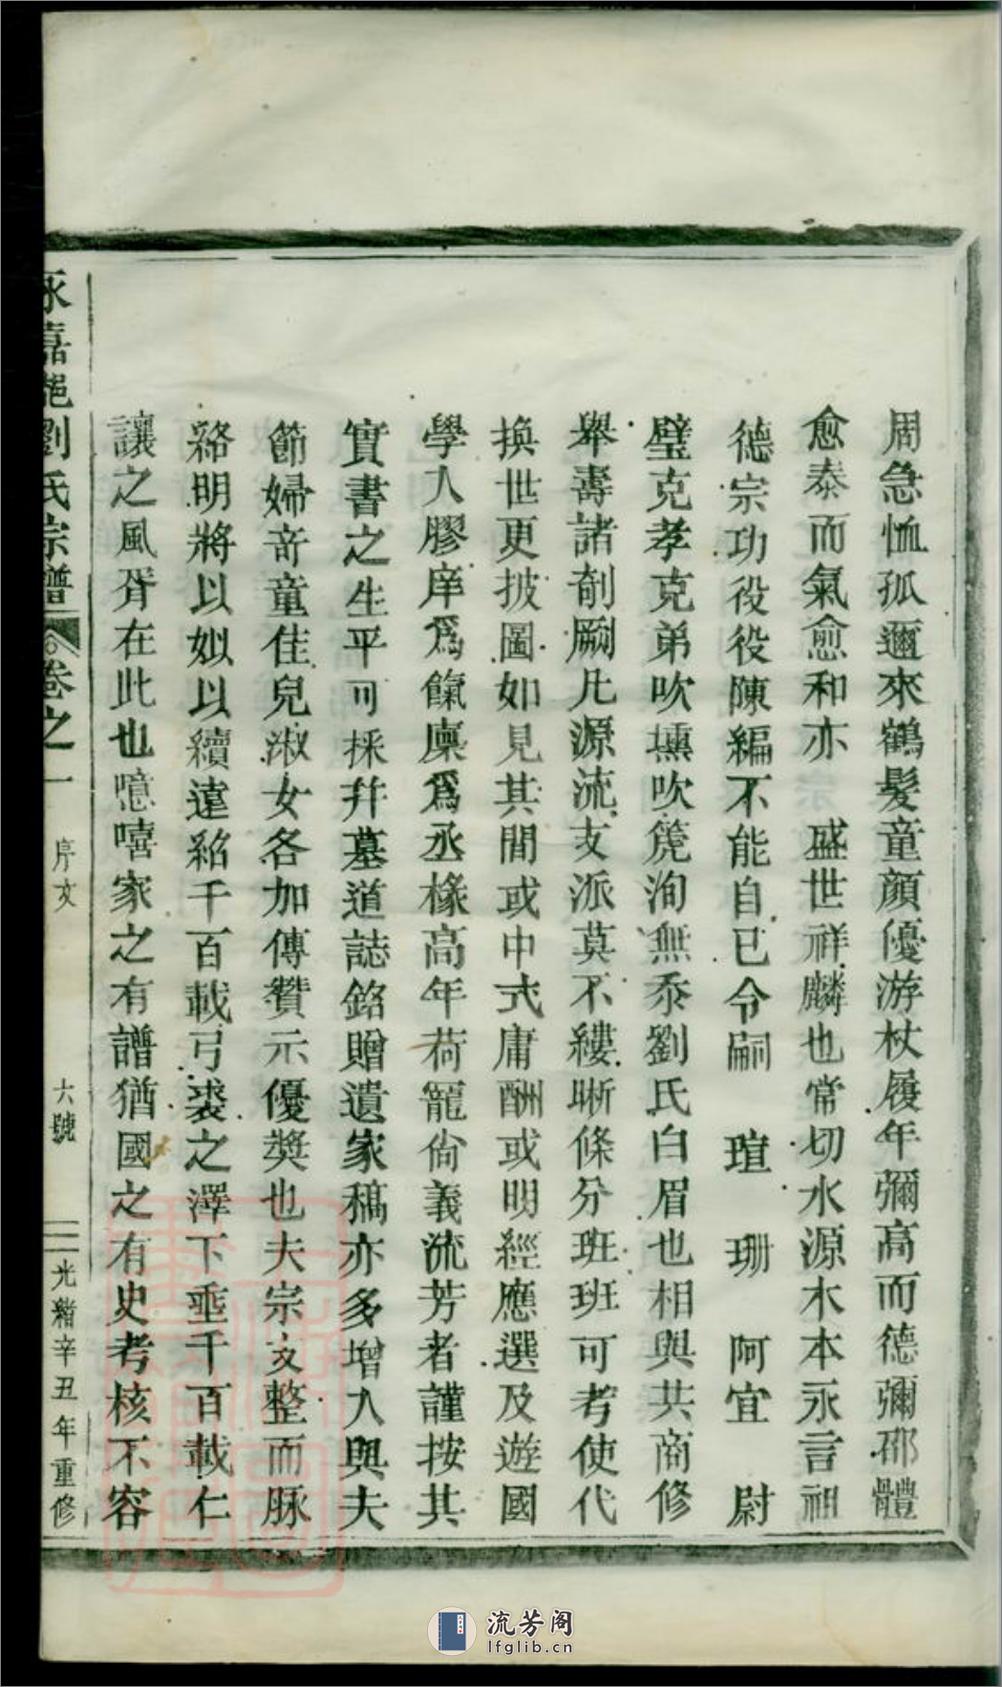 周急恤孤邇來鶴髮童顏優游杖履年彌高而德彌邵體
愈泰而氣愈和亦 盛世祥麟也常切水源木本永言祖
德宗功役役陳編不能自已令嗣 瑄 珊 阿宜 尉
璧克孝克弟吹壎吹篪洵無忝劉氏白眉也相與共商修
舉壽諸剞劂凡源流支派莫不縷晰條分班班可考使代
換世更披圖如見其間或中式庸酬或明經應選及遊國
學入膠庠為餼廩為丞椽高年荷寵尚義流芳者謹按其
實書之生平可採幷墓道誌銘贈遺家稿亦多增入與夫
節婦奇童佳兒淑女各加傳贊示優獎也夫宗支整而脉
絡明將以姒以續遠紹千百載弓裘之澤下垂千百載仁
讓之風胥在此也噫嘻家之有譜猶國之有史考核不容
永嘉 劉氏宗譜 卷之一 序文 六號 二 光緒辛丑年重修
流芳阁
lfglib.cn